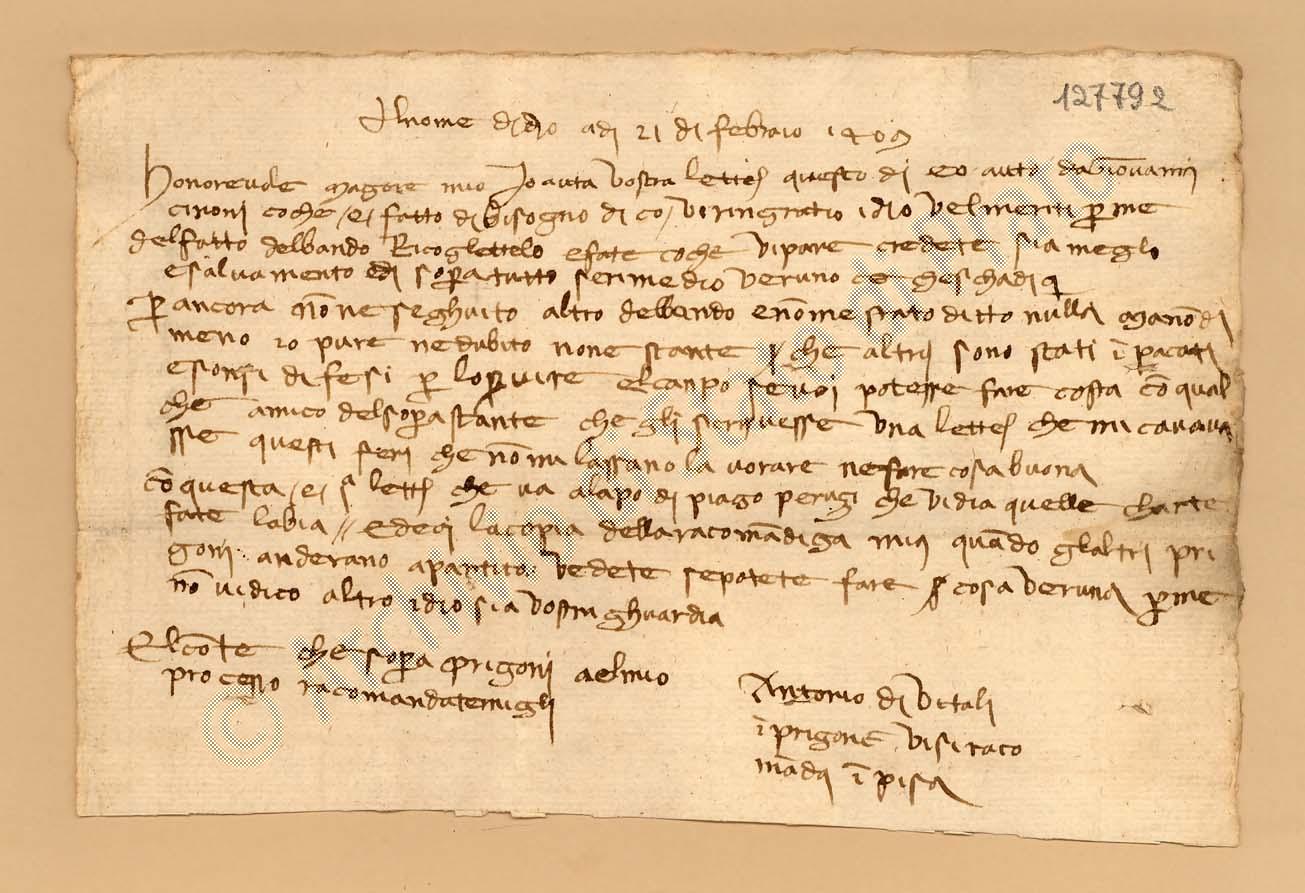 127792
Al nome di dio adi 21 di febraio 1409
Honorevole magore mio Io auta vostra lettera questo di eo auto da Giovanni
cinoni coche ei fatto di bisogno di co vi ringratio idio vel meriti per me
del fatto del bando Ricoglettelo e fate coche vi pare credete sia meglo
e salvamento edi sopra tutto
per ancora non ne seghuito altro del bando e nome stato ditto nulla ma non di
meno io pure ne dubito none stante che altri sono stati
e sonsi difesi per lo servire el canpo se voi potesse fare costa con qual
che amico del soprastante che gli scrivesse una lettera che mi cavava
sse questi feri che non mi lassano lavorare ne fare cosa buona
con questa ei lettera che va a lapo di piago perugi che vi dia quelle charte
fate labia e deci la copia della racomandiga mia quando gl altri pri
goni anderano a partito vedete se potete fare cosa veruna per me
non vi dico altro idio sia vostra ghuardia
El conte che sopra prigoni a el mio
processo racomandatemigli
Antonio di Vitali
in prigone visi raco
manda in pisa
© Archivio di Stato di Prato